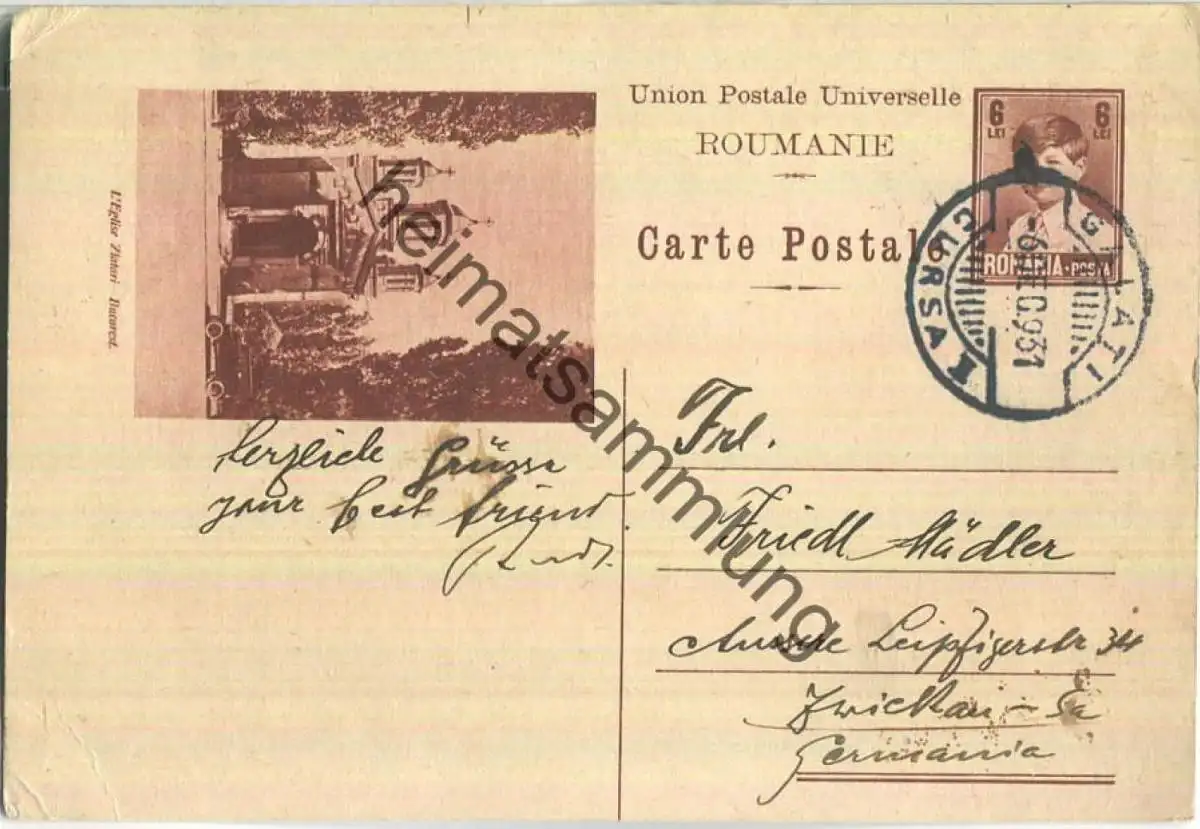 Union Postale Universelle
ROUMANIE
Carte Postale
6 LEI 6 LEI
ROMANIA • POSTA
GALATI
CURSA I
L'Eglise Zlatari — Bucarest.
herzliche Grüsse
your best friend.
Frl.
Friedl Mädler
Äussere Leipzigerstr 34
Zwickau – Sa
Germania
heimatsammlung